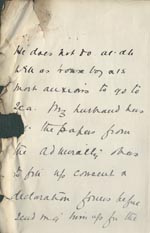 He does not do at all
well as
most anxious to go to
Sea. My husband has
the papers from
the admiralty & has
to fill up consent &
declaration forms before
send him up for the